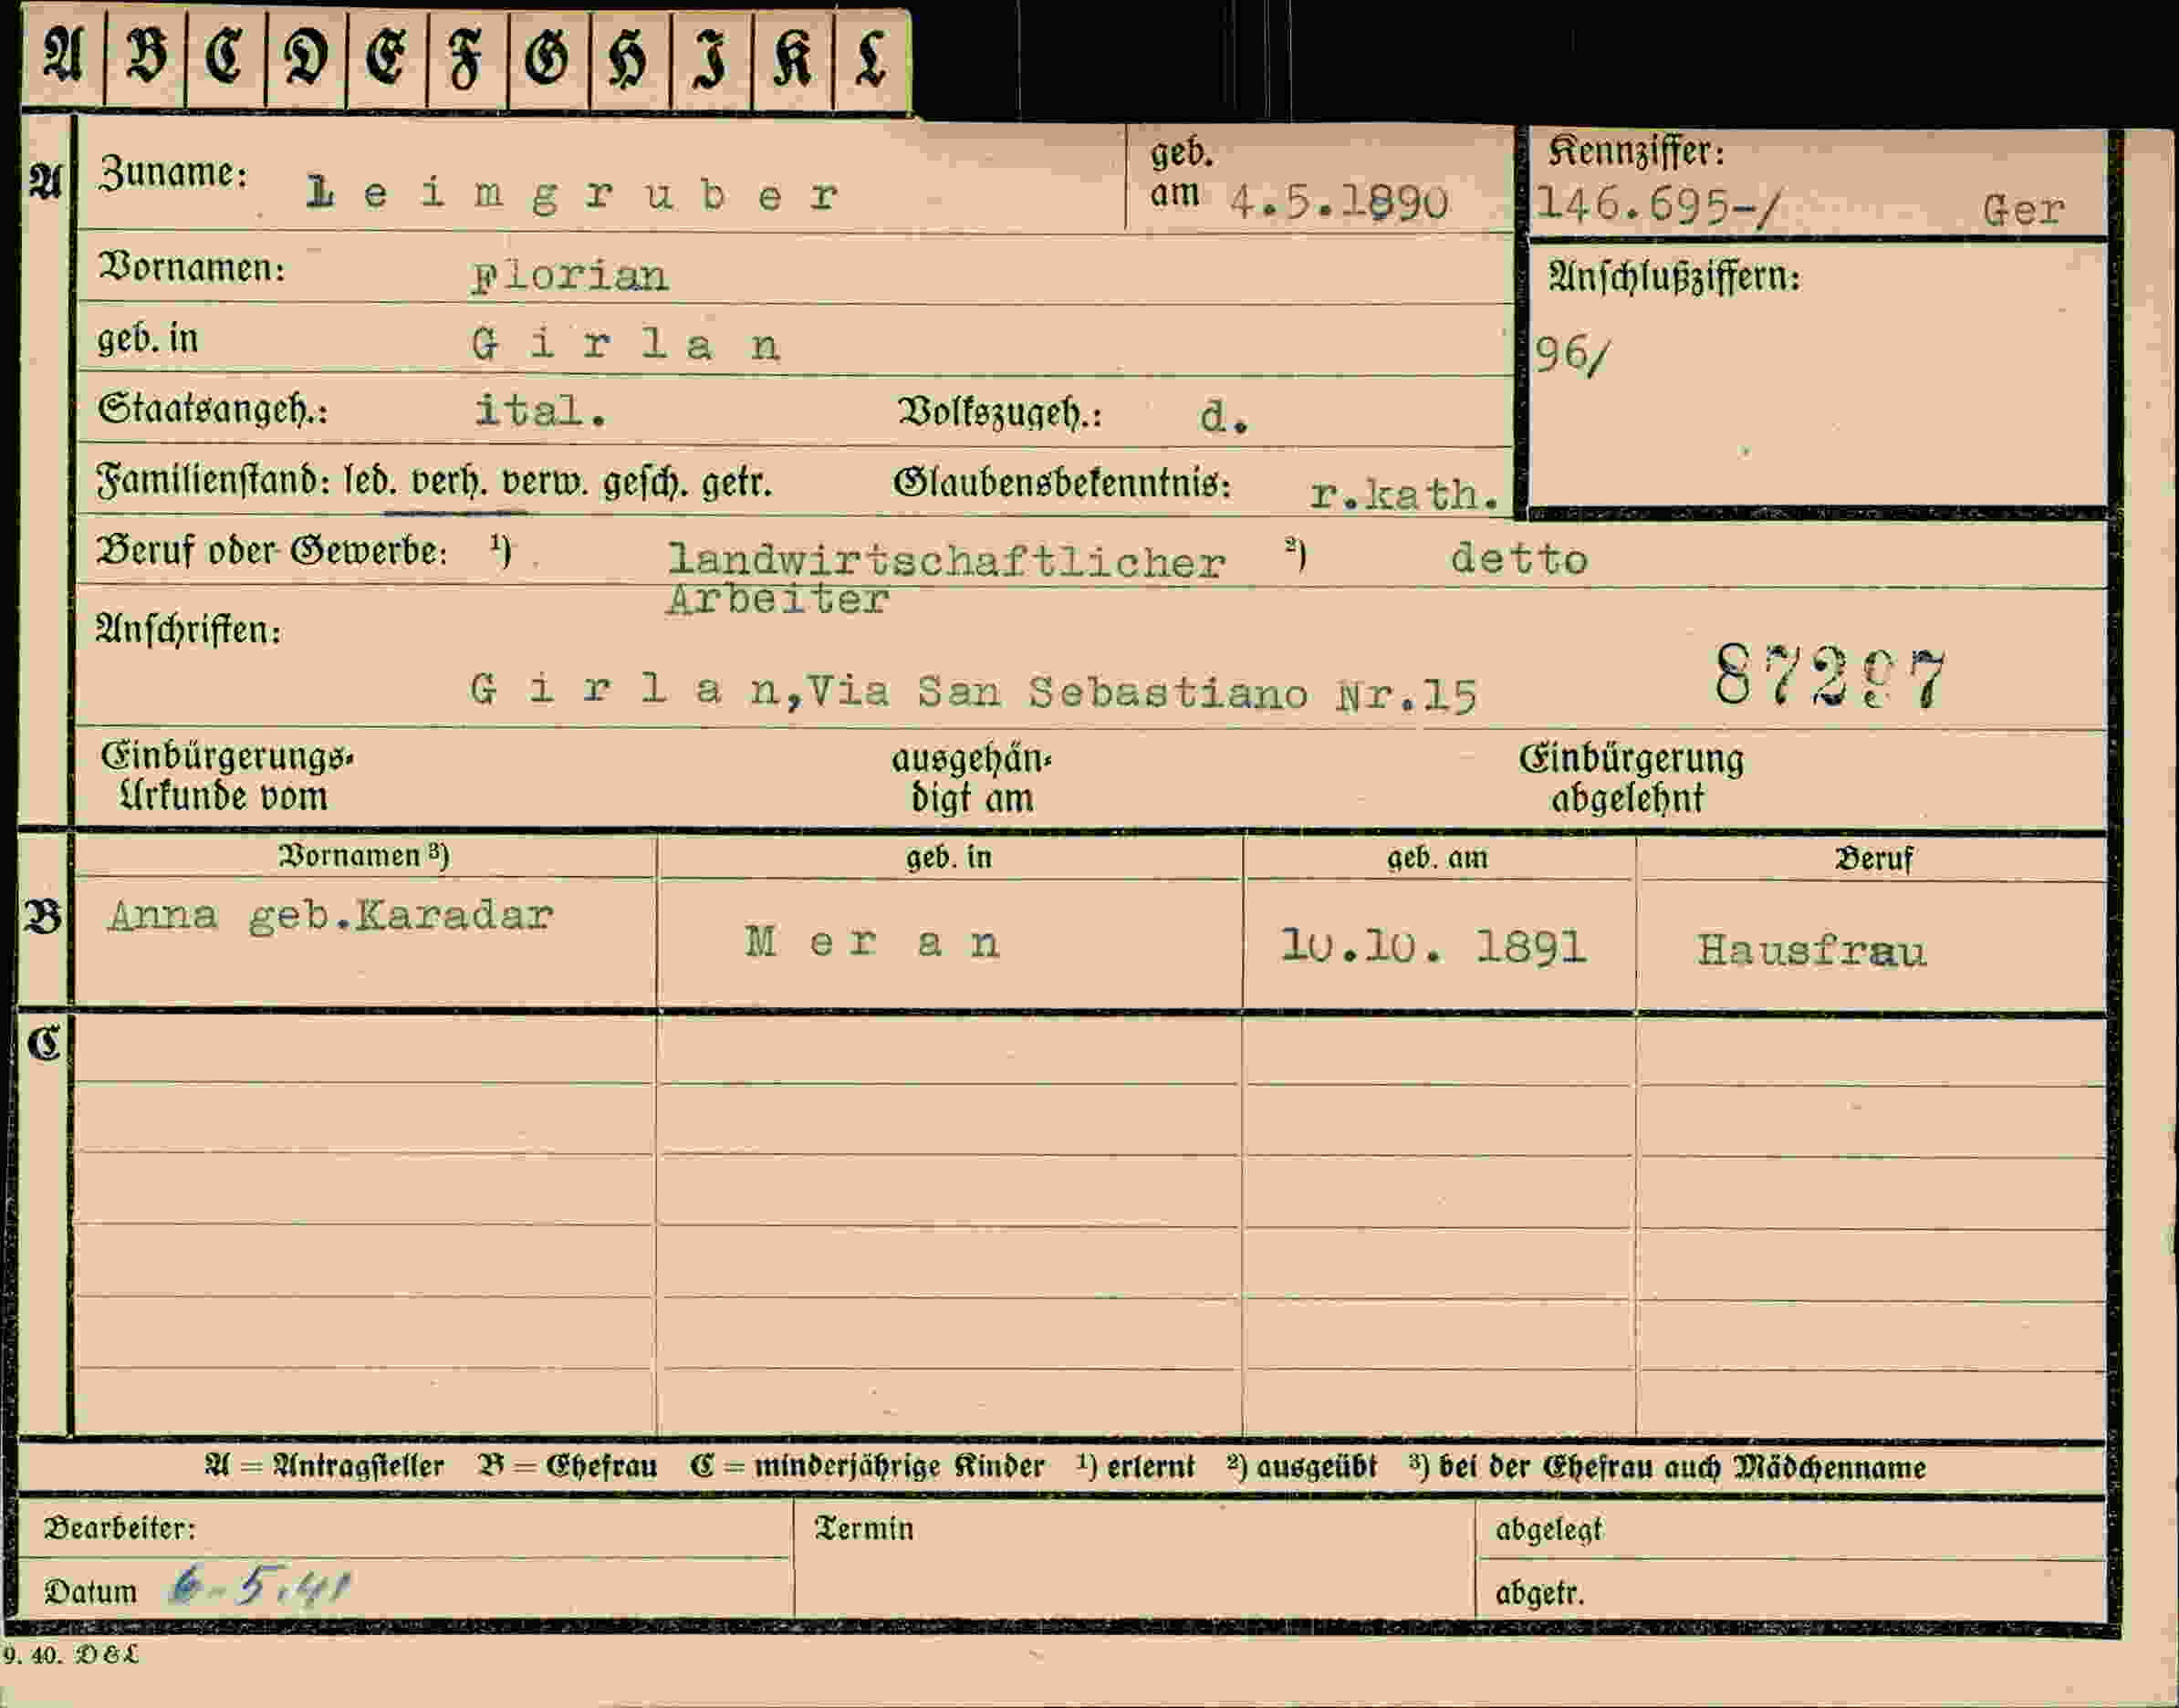 A B C D E F G H I K L
A Zuname: Leimgruber geb. am 4.5.1890 Kennziffer: 146.695-/ Ger
Vornamen: Florian Anschlußziffern:
geb. in Girlan 96/
Staatsangeh.: ital. Volkszugeh.: d.
Familienstand: led. verh. verw. gesch. getr. Glaubensbekenntnis: r.kath.
Beruf oder Gewerbe: ¹) landwirtschaftlicher ²) detto
Arbeiter
Anschriften:
Girlan, Via San Sebastiano Nr.15 87297
Einbürgerungs- ausgehän- Einbürgerung
Urkunde vom digt am abgelehnt
Vornamen ³) geb. in geb. am Beruf
B Anna geb.Karadar Meran 10.10. 1891 Hausfrau
C
A = Antragsteller B = Ehefrau C = minderjährige Kinder ¹) erlernt ²) ausgeübt ³) bei der Ehefrau auch Mädchenname
Bearbeiter: Termin abgelegt
Datum 6-5.41 abgetr.
9. 40. D & L